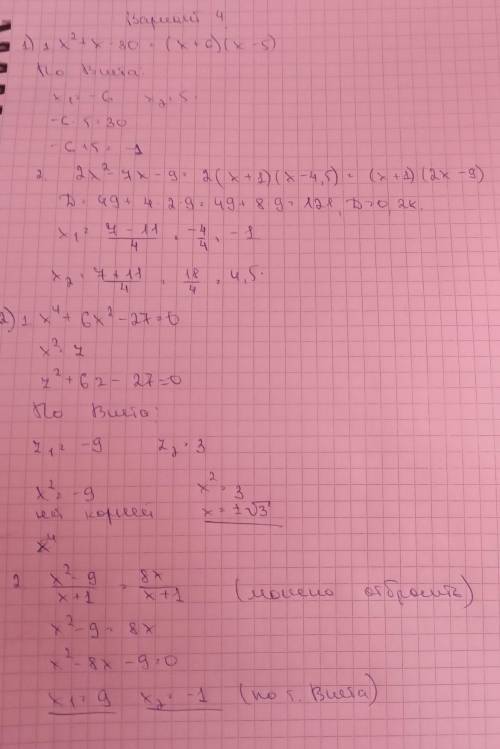 Вариант 4
1) 1 x² + x - 30 = (x + 6)(x - 5)
По Виета:
x₁ = -6 x₂ = 5
-6 · 5 = 30
-6 + 5 = -1
2. 2x² - 7x - 9 = 2(x + 1)(x - 4,5) = (x + 1)(2x - 9)
D = 49 + 4 · 2 · 9 = 49 + 8 · 9 = 121, D > 0, 2к.
x₁ = (7 - 11)/4 = -4/4 = -1
x₂ = (7 + 11)/4 = 18/4 = 4,5
2) 1 x⁴ + 6x² - 27 = 0
x² = z
z² + 6z - 27 = 0
По Виета:
z₁ = -9 z₂ = 3
x² = -9 x² = 3
нет корней x = ±√3
x⁴
2 (x² - 9)/(x + 1) = 8x/(x + 1) (можно отбросить)
x² - 9 = 8x
x² - 8x - 9 = 0
x₁ = 9 x₂ = -1 (по т. Виета)